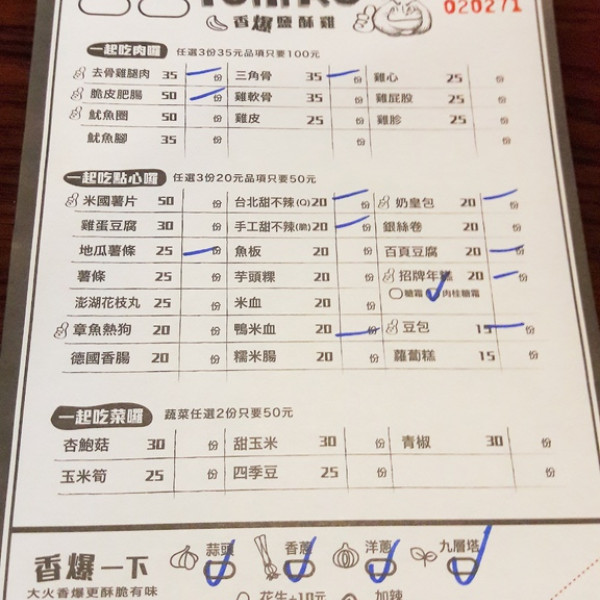 香爆鹽酥雞
020271
一起吃肉囉 任選3份35元品項只要100元
去骨雞腿肉 35 份 三角骨 35 份 雞心 25 份
脆皮肥腸 50 份 雞軟骨 35 份 雞屁股 25 份
魷魚圈 50 份 雞皮 25 份 雞胗 25 份
魷魚腳 35 份 份 份
一起吃點心囉 任選3份20元品項只要50元
米國薯片 50 份 台北甜不辣(Q) 20 份 奶皇包 20 份
雞蛋豆腐 30 份 手工甜不辣(脆) 20 份 銀絲卷 20 份
地瓜薯條 25 份 魚板 20 份 百頁豆腐 20 份
薯條 25 份 芋頭粿 20 份 招牌年糕 20 份
糖霜 肉桂糖霜
澎湖花枝丸 25 份 米血 20 份
章魚熱狗 20 份 鴨米血 20 份 豆包 15 份
德國香腸 20 份 糯米腸 20 份 蘿蔔糕 15 份
一起吃菜囉 蔬菜任選2份只要50元
杏鮑菇 30 份 甜玉米 30 份 青椒 30 份
玉米筍 25 份 四季豆 25 份 份
香爆一下 蒜頭 香蔥 洋蔥 九層塔
大火香爆更酥脆有味 花生+10元 加辣